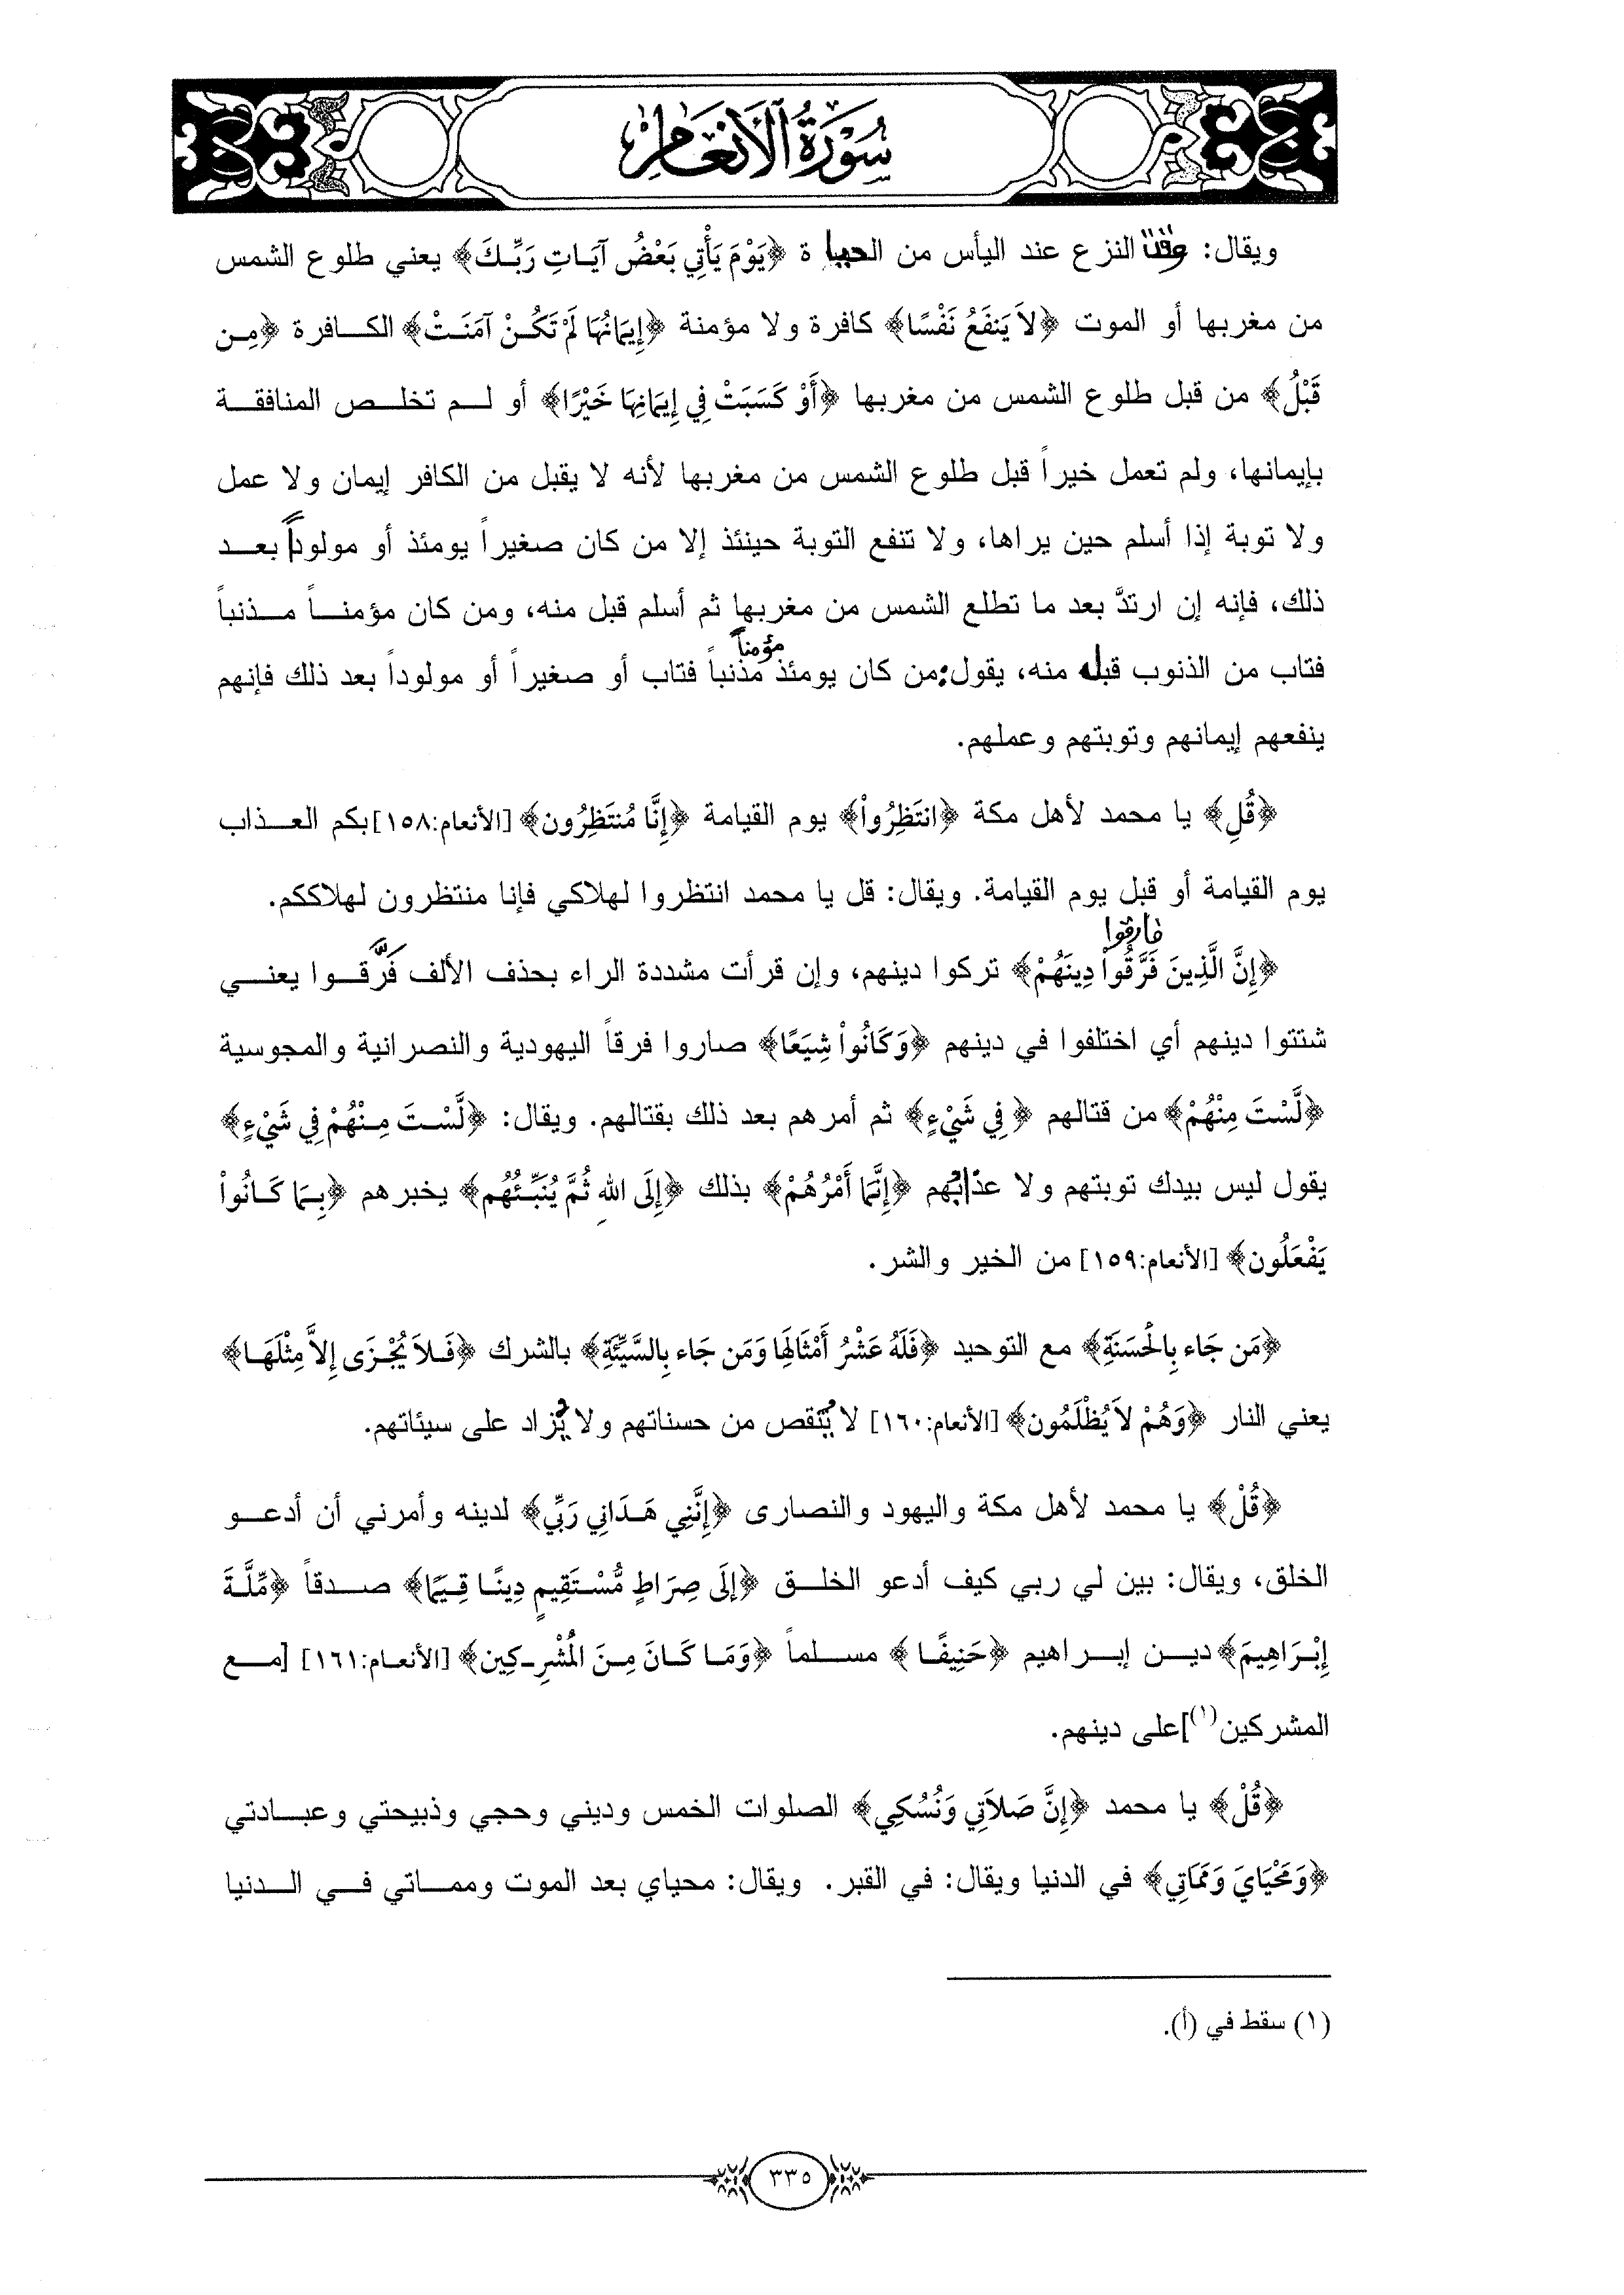 سورة الأنعام
ويقال: وقت النزع عند اليأس من الحياة ﴿يَوْمَ يَأْتِي بَعْضُ آيَاتِ رَبِّكَ﴾ يعني طلوع الشمس
من مغربها أو الموت ﴿لاَ يَنفَعُ نَفْسًا﴾ كافرة ولا مؤمنة ﴿إِيمَانُهَا لَمْ تَكُنْ آمَنَتْ﴾ الكافرة ﴿مِن
قَبْلُ﴾ من قبل طلوع الشمس من مغربها ﴿أَوْ كَسَبَتْ فِي إِيمَانِهَا خَيْرًا﴾ أو لم تخلص المنافقة
بإيمانها، ولم تعمل خيراً قبل طلوع الشمس من مغربها لأنه لا يقبل من الكافر إيمان ولا عمل
ولا توبة إذا أسلم حين يراها، ولا تنفع التوبة حينئذ إلا من كان صغيراً يومئذ أو مولوداً بعد
ذلك، فإنه إن ارتدَّ بعد ما تطلع الشمس من مغربها ثم أسلم قبل منه، ومن كان مؤمناً مذنباً
مؤمناً
فتاب من الذنوب قبل منه، يقول: من كان يومئذ مذنباً فتاب أو صغيراً أو مولوداً بعد ذلك فإنهم
ينفعهم إيمانهم وتوبتهم وعملهم.
﴿قُلِ﴾ يا محمد لأهل مكة ﴿انتَظِرُواْ﴾ يوم القيامة ﴿إِنَّا مُنتَظِرُون﴾ [الأنعام:١٥٨] بكم العذاب
يوم القيامة أو قبل يوم القيامة. ويقال: قل يا محمد انتظروا لهلاكي فإنا منتظرون لهلاككم.
فارقوا
﴿إِنَّ الَّذِينَ فَرَّقُواْ دِينَهُمْ﴾ تركوا دينهم، وإن قرأت مشددة الراء بحذف الألف فَرَّقوا يعني
شتتوا دينهم أي اختلفوا في دينهم ﴿وَكَانُواْ شِيَعًا﴾ صاروا فرقاً اليهودية والنصرانية والمجوسية
﴿لَّسْتَ مِنْهُمْ﴾ من قتالهم ﴿فِي شَيْءٍ﴾ ثم أمرهم بعد ذلك بقتالهم. ويقال: ﴿لَّسْتَ مِنْهُمْ فِي شَيْءٍ﴾
يقول ليس بيدك توبتهم ولا عذابهم ﴿إِنَّمَا أَمْرُهُمْ﴾ بذلك ﴿إِلَى اللهِ ثُمَّ يُنَبِّئُهُم﴾ يخبرهم ﴿بِمَا كَانُواْ
يَفْعَلُون﴾ [الأنعام:١٥٩] من الخير والشر.
﴿مَن جَاء بِالْحَسَنَةِ﴾ مع التوحيد ﴿فَلَهُ عَشْرُ أَمْثَالِهَا وَمَن جَاء بِالسَّيِّئَةِ﴾ بالشرك ﴿فَلاَ يُجْزَى إِلاَّ مِثْلَهَا﴾
يعني النار ﴿وَهُمْ لاَ يُظْلَمُون﴾ [الأنعام:١٦٠] لا يُنقص من حسناتهم ولا يُزاد على سيئاتهم.
﴿قُلْ﴾ يا محمد لأهل مكة واليهود والنصارى ﴿إِنَّنِي هَدَانِي رَبِّي﴾ لدينه وأمرني أن أدعو
الخلق، ويقال: بين لي ربي كيف أدعو الخلق ﴿إِلَى صِرَاطٍ مُّسْتَقِيمٍ دِينًا قِيَمًا﴾ صدقاً ﴿مِّلَّةَ
إِبْرَاهِيمَ﴾ دين إبراهيم ﴿حَنِيفًا﴾ مسلماً ﴿وَمَا كَانَ مِنَ الْمُشْرِكِين﴾ [الأنعام:١٦١] [مع
المشركين(١)] على دينهم.
﴿قُلْ﴾ يا محمد ﴿إِنَّ صَلاَتِي وَنُسُكِي﴾ الصلوات الخمس وديني وحجي وذبيحتي وعبادتي
﴿وَمَحْيَايَ وَمَمَاتِي﴾ في الدنيا ويقال: في القبر. ويقال: محياي بعد الموت ومماتي في الدنيا
(١) سقط في (أ).
٣٣٥